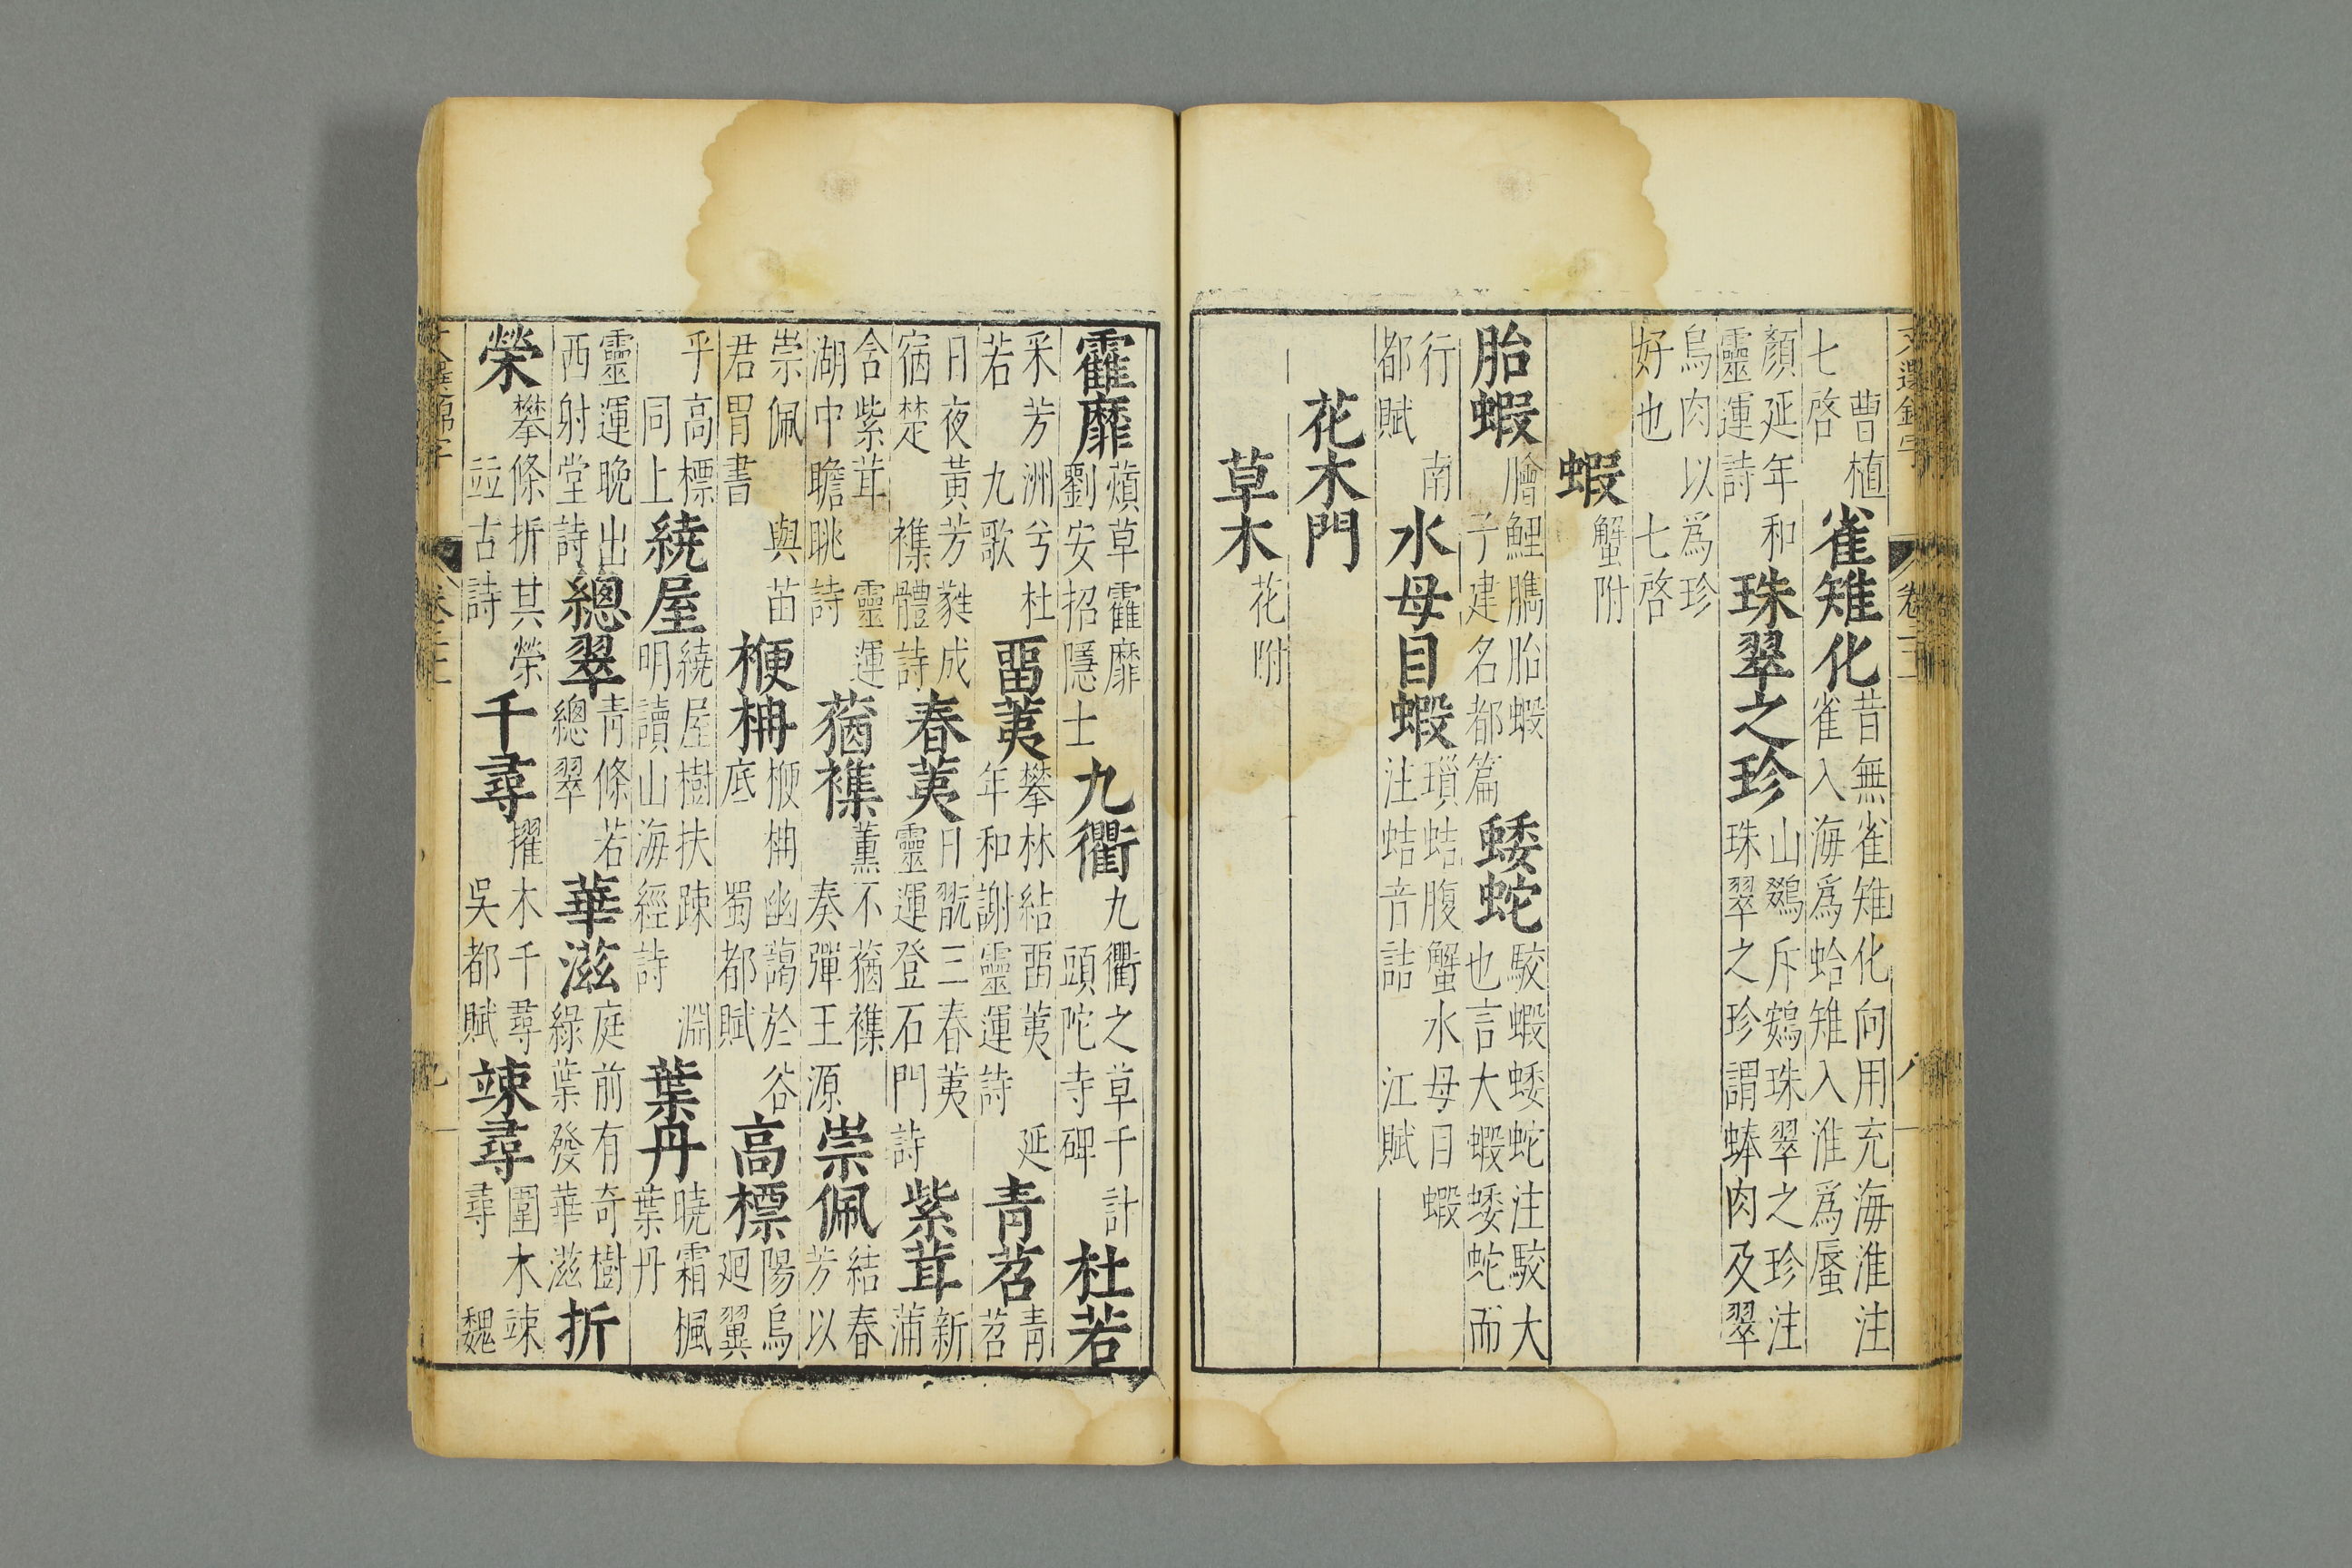 曹植七啓雀雉化昔無雀雉化向用充海淮注雀入海爲蛤雉入淮爲蜃
顏延年和靈運詩珠翠之珍山鵽斥鷃珠翠之珍注珠翠之珍謂蜯肉及翠
鳥肉以爲珍好也七啓
蝦蟹附
胎蝦膾鯉臇胎蝦子建名都篇蜲蛇駮蝦蜲蛇注駮大也言大蝦蜲蛇而
行南都賦水母目蝦璅蛣腹蟹水母目蝦注蛣音詰江賦
花木門
草木花附
藿靡薠草藿靡劉安招隱士九衢九衢之草千計頭陀寺碑杜若
采芳洲兮杜若九歌畱荑攀林結畱荑延年和謝靈運詩青苕青苕
日夜黃芳蕤成宿楚襍體詩春荑日翫三春荑靈運登石門詩紫茸新蒲
含紫茸靈運湖中瞻眺詩蕕襍薰不蕕襍奏彈王源崇佩結春芳以
崇佩與苗君冑書楩柟楩柟幽藹於谷底蜀都賦高標陽烏迴翼
乎高標同上繞屋繞屋樹扶疎淵明讀山海經詩葉丹曉霜楓葉丹
靈運晚出西射堂詩總翠青條若總翠華滋庭前有奇樹綠葉發華滋折
榮攀條折其榮竝古詩千尋擢木千尋吳都賦竦尋圍木竦尋魏